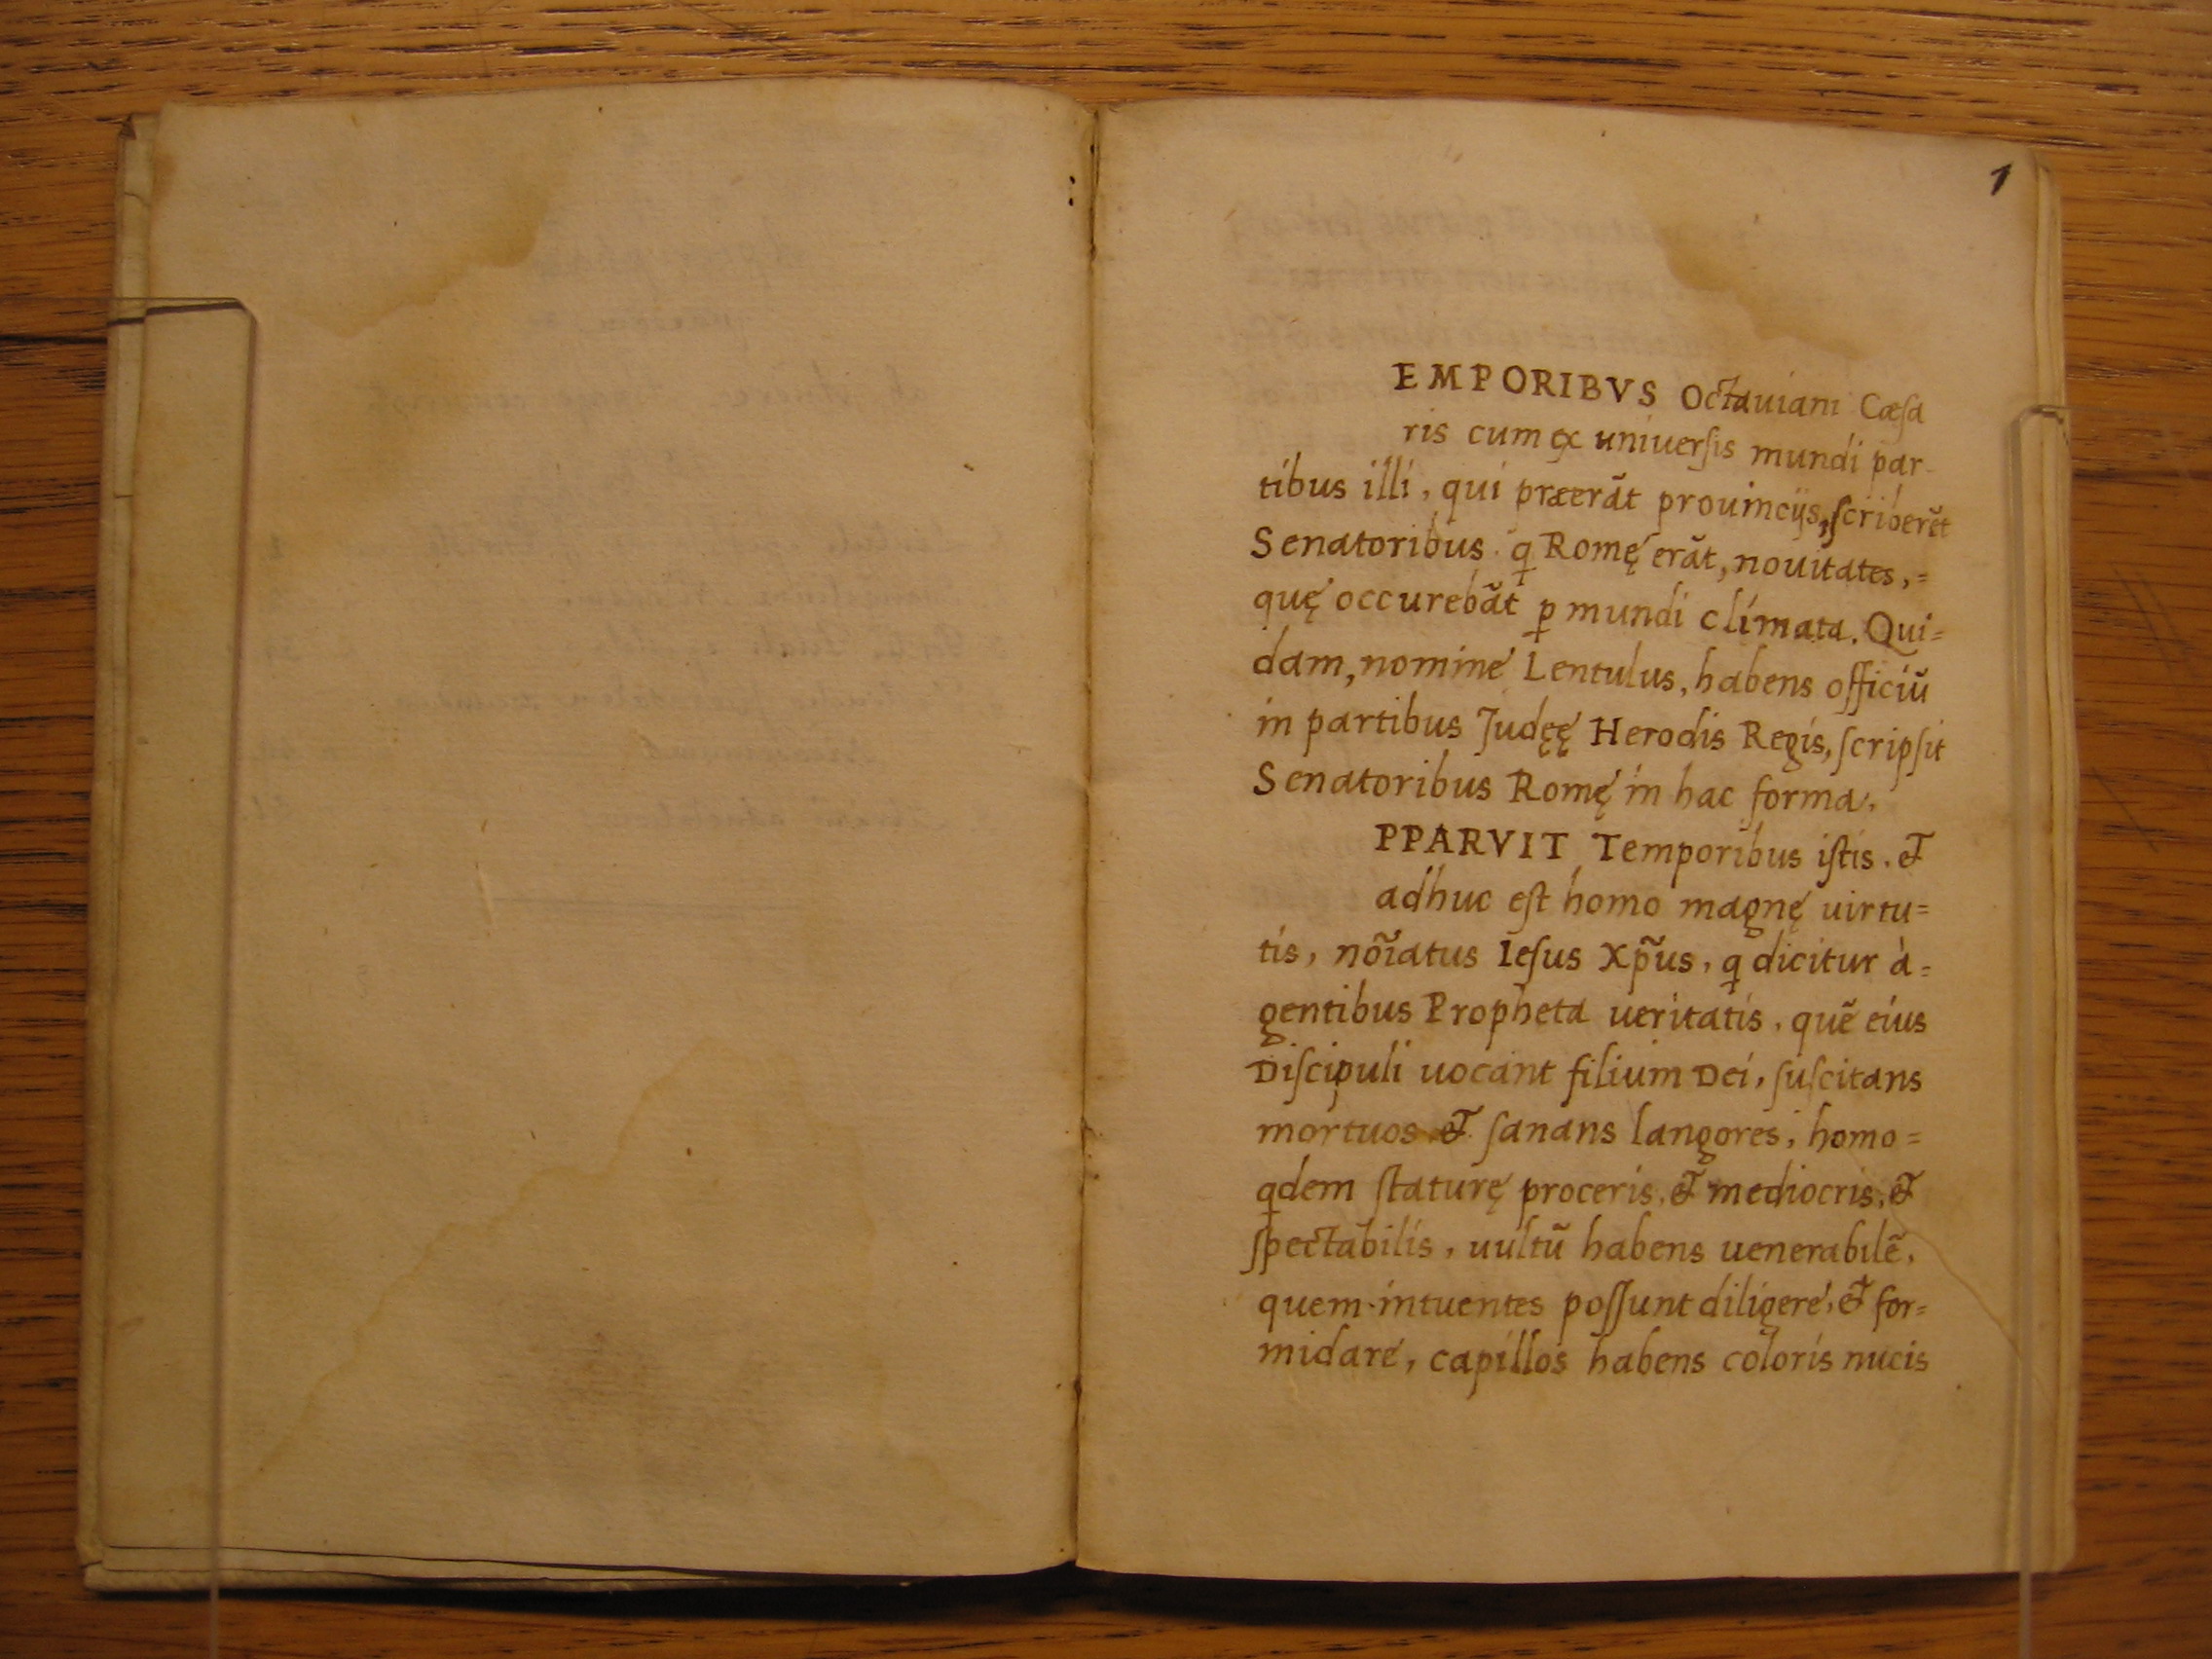 1
EMPORIBVS Octauiani Cæsa
ris cum ex uniuersis mundi par-
tibus illi, qui præerãt prouincijs, scriberẽt
Senatoribus. ꝗ Romę erãt, nouitates, =
quę occurebãt ꝑ mundi climata. Qui=
dam, nomine Lentulus, habens officiũ
in partibus Judęę Herodis Regis, scripsit
Senatoribus Romę in hac forma.
PPARVIT Temporibus istis. et
adhuc est homo magnę uirtu=
tis, nõiatus Iesus Xp̃us, ꝗ dicitur à =
gentibus Propheta ueritatis, quẽ eius
Discipuli uocant filium Dei, suscitans
mortuos et sanans langores, homo =
ꝗdem staturę proceris, et mediocris, et
spectabilis, uultũ habens uenerabilẽ,
quem intuentes possunt diligere, et for=
midare, capillos habens coloris nucis